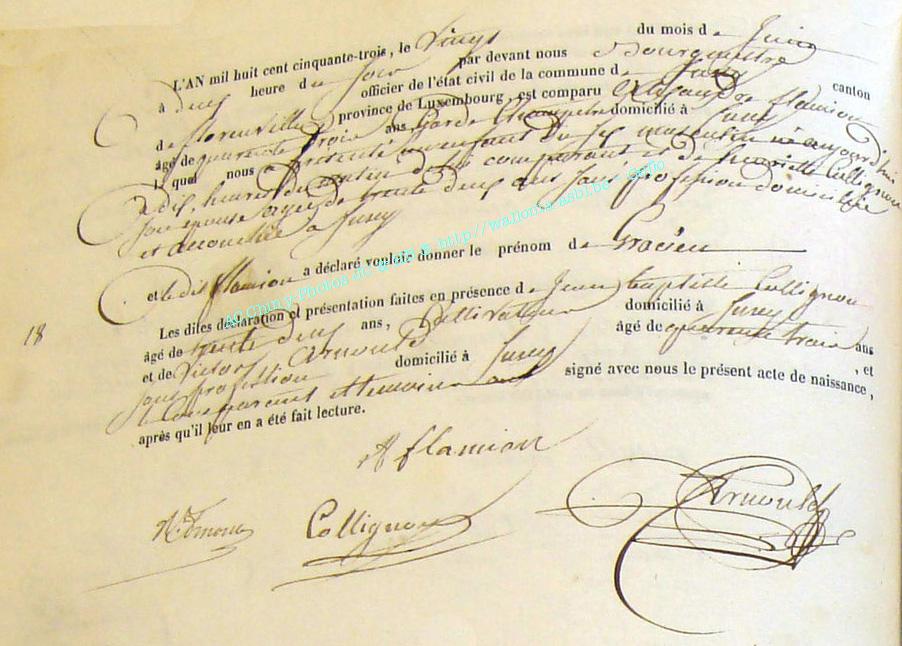 L'AN mil huit cent cinquante-trois, le vingt du mois de Juin
à deux heure du Soir par devant nous Bourgmestre
officier de l'état civil de la commune de Jusey canton
de florenville province de Luxembourg, est comparu Alexandre flamion
âgé de quarante trois ans Garde Champetre domicilié à Jusey
le quel nous a présenté un enfant du sex masculin né aujourd'hui
à dix heures du matin de lui comparant et de henriette Collignon
son epouse agée de trente deux ans sans profession domiciliée
et accouchée a Jusey
et le dit flamion a déclaré vouloir donner le prénom de Gracien
AC Chiny - Photos http://wallonia.asbl.be
Les dites déclaration et présentation faites en présence de Jean baptiste Collignon
âgé de trente deux ans, Cultivateur domicilié à Jusey
et de Victor Arnould âgé de quarante trois ans
sans profession domicilié à Jusey , et
le comparant et temoins ont signé avec nous le présent acte de naissance,
après qu'il leur en a été fait lecture.
18
A flamion
Collignon
Arnould